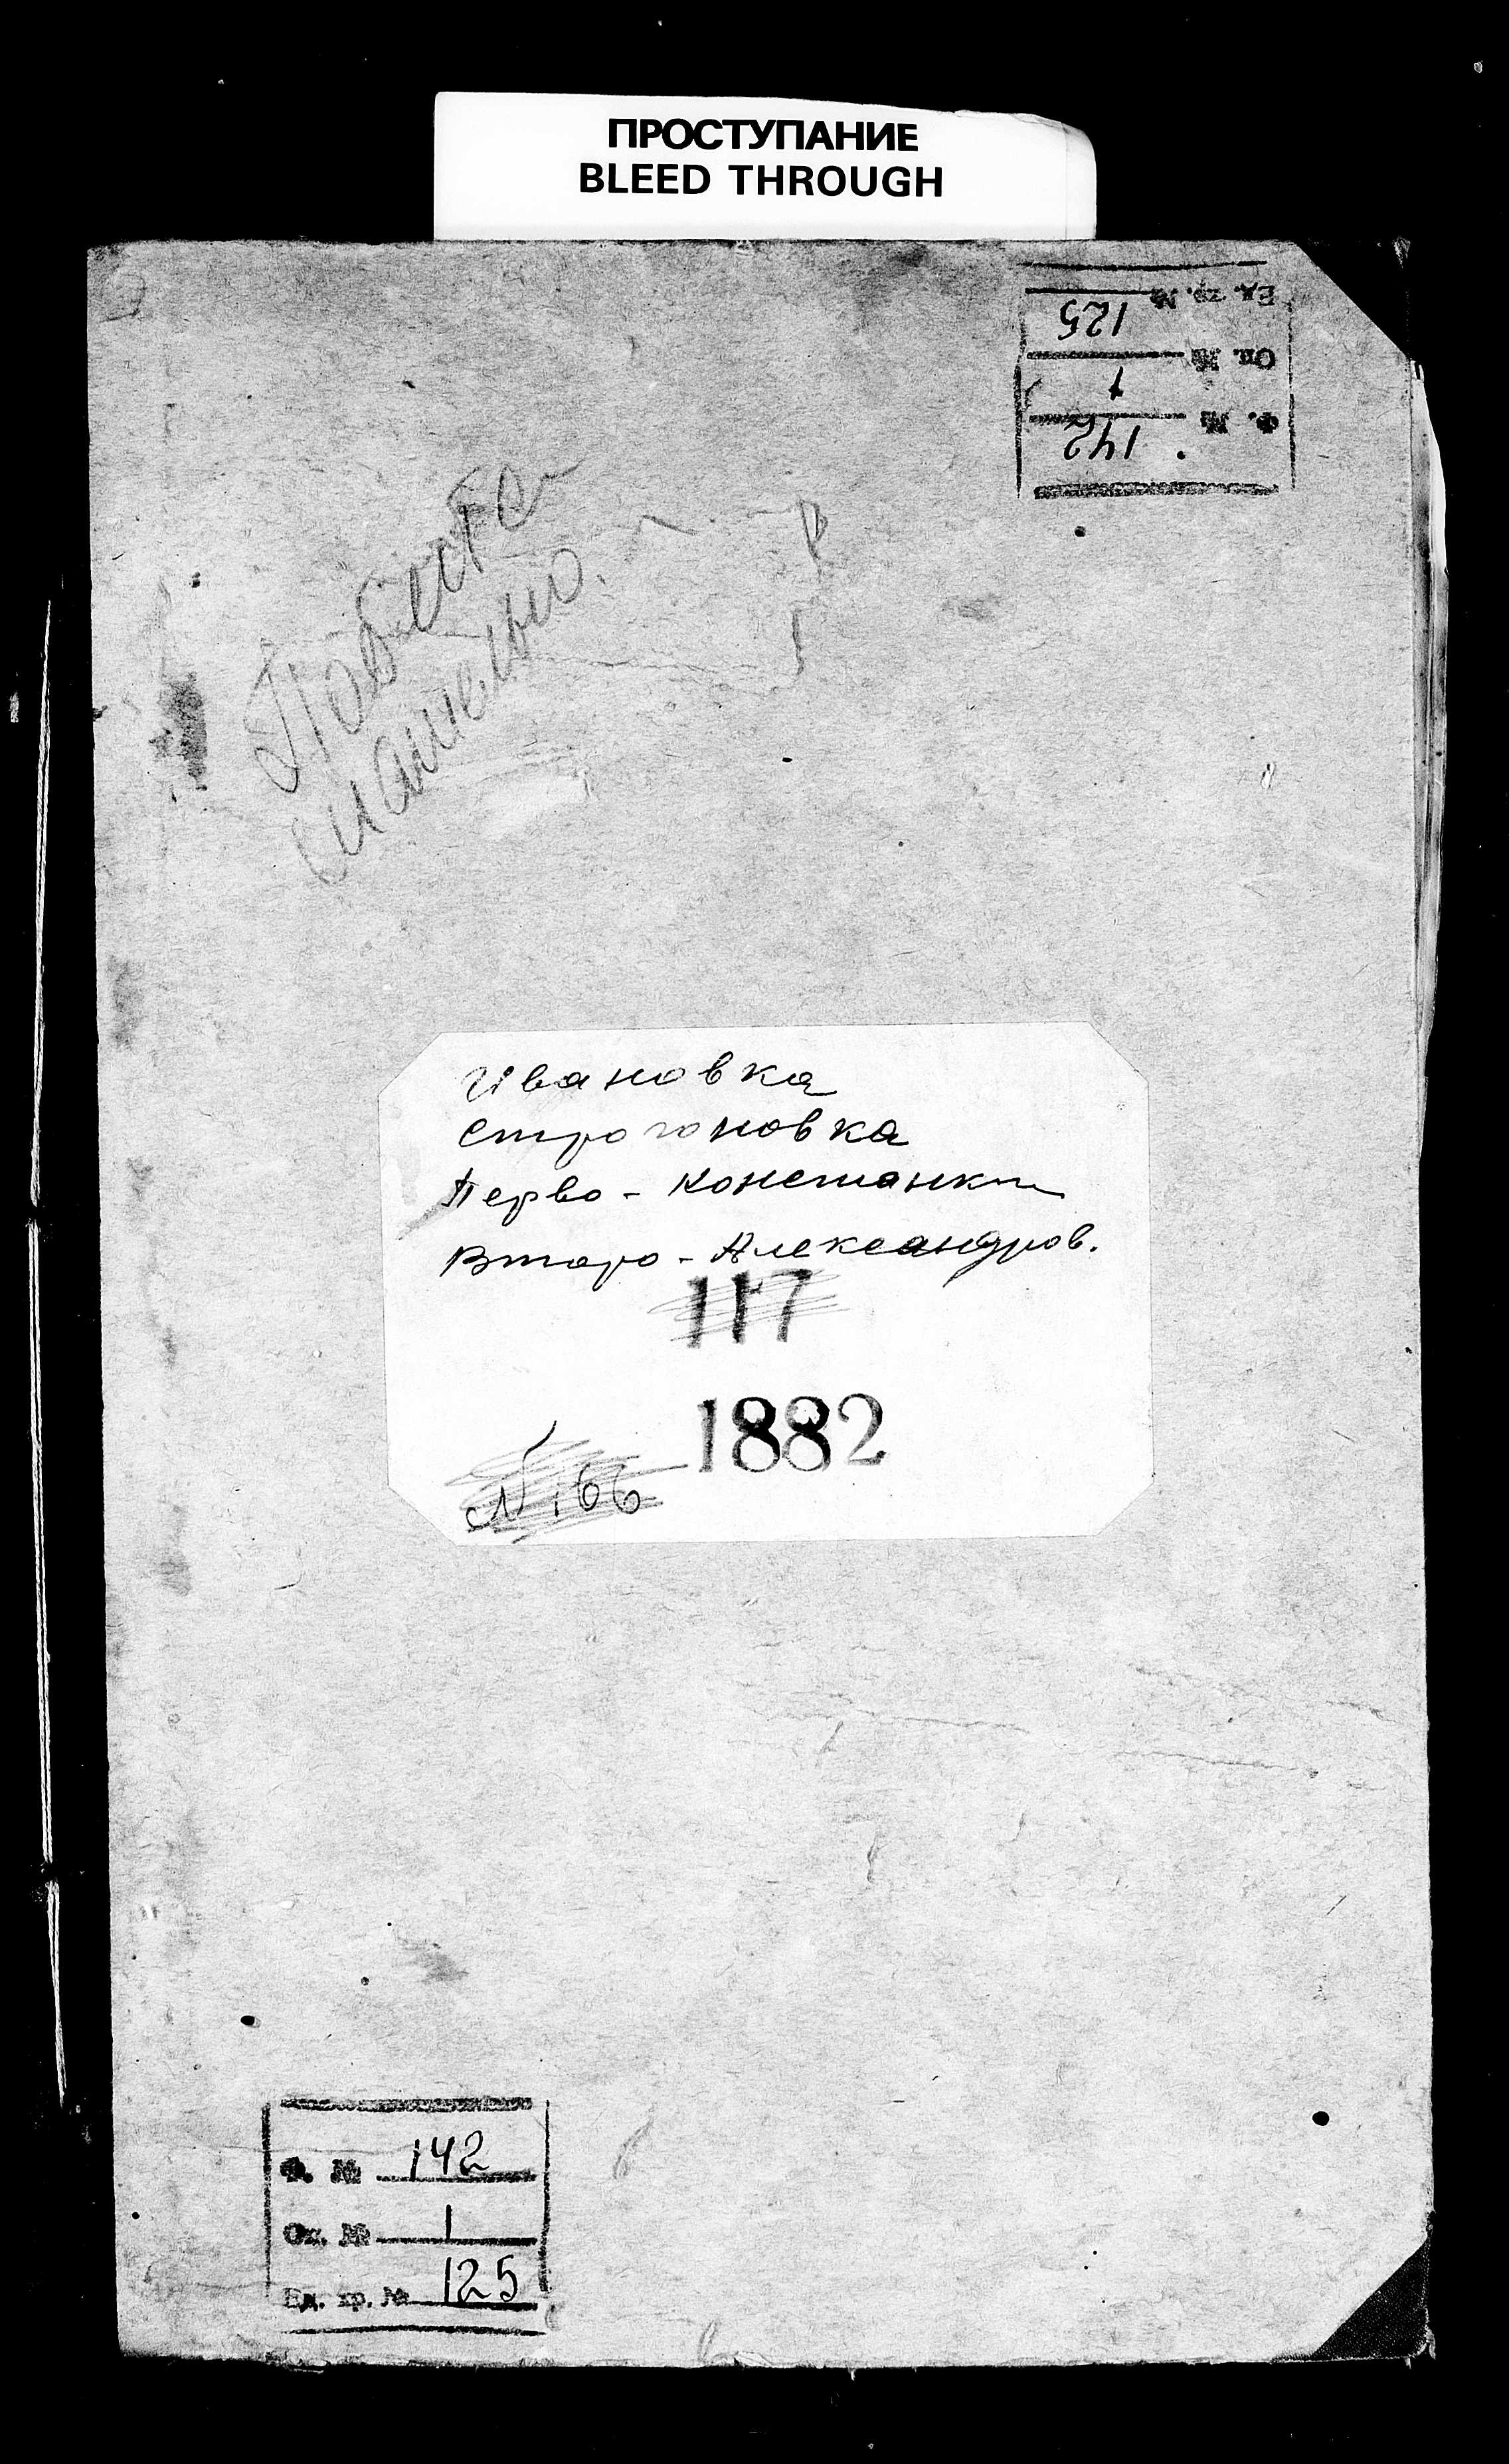 ПРОСТУПАНИЕ
BLEED THROUGH
Ед. хр. № 125
Оп. № 1
Ф. № 142
Ивановка
Строгоновка
Перво-Констанкти
Второ-Александров.
117
1882
№ 166
Ф. № 142
Оп. № 1
Ед. хр. № 125